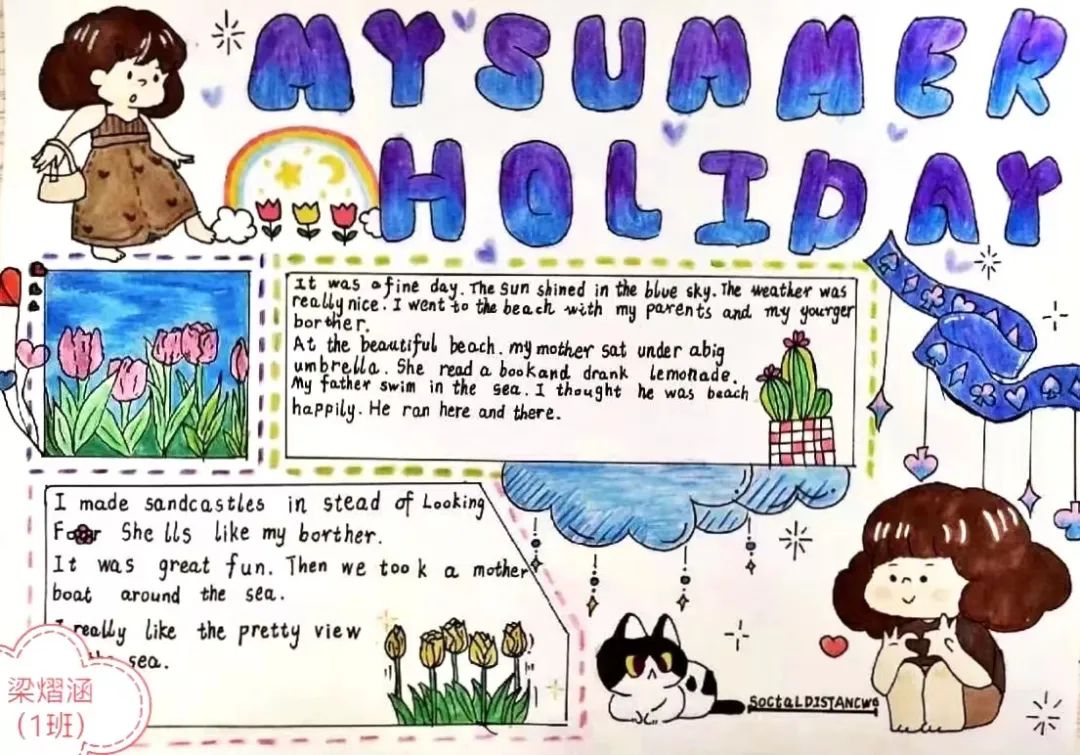 MY SUMMER
HOLIDAY
It was a fine day. The sun shined in the blue sky. The weather was
really nice. I went to the beach with my parents and my yourger
borther.
At the beautiful beach. my mother sat under abig
umbrella. She read a bookand drank lemonade.
My father swim in the sea. I thought he was beach
happily. He ran here and there.
I made sandcastles in stead of Looking
For She lls like my borther.
It was great fun. Then we took a mother
boat around the sea.
I really like the pretty view
sea.
SoctaL DISTANCWG
梁熠涵
(1班)